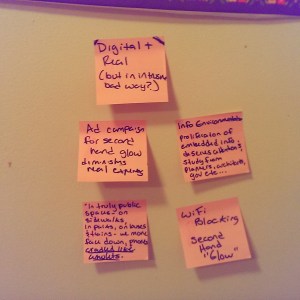 Digital +
Real
(but in
bad way?)
Ad campaign
for second
hand glow
real
Info Environments
Proliferation of
embedded info.
study from
planners, architects,
gov etc...
"In truly public
spaces - on
sidewalks,
in parks, on buses
& trains - we move
face down,
cradled like
amulets.
WiFi
Blocking
Second
Hand
"Glow"